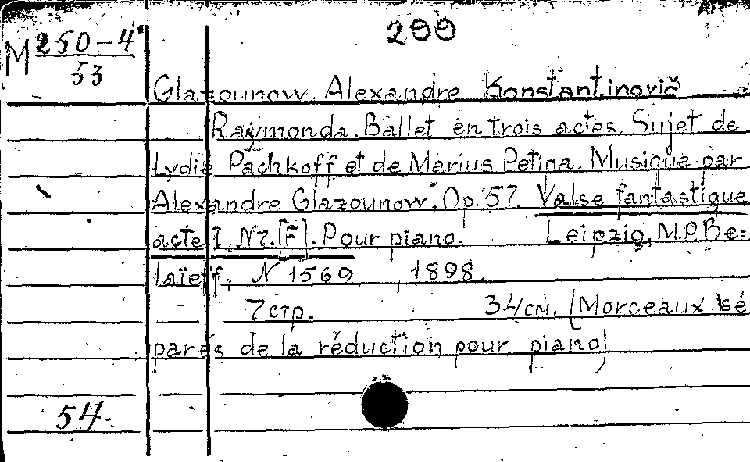 200
M 250-4
53
Glazounow, Alexandre Konstantinovič
Raymonda. Ballet en trois actes. Sujet de
Lydie Pachkoff et de Marius Petipa. Musique par
Alexandre Glazounow. Op. 57. Valse fantastique
acte I, N7. [F]. Pour piano. Leipzig, M.P. Be=
laïeff, N 1560 1898.
7 стр. 34 см. (Morceaux sé
parés de la réduction pour piano)
54.